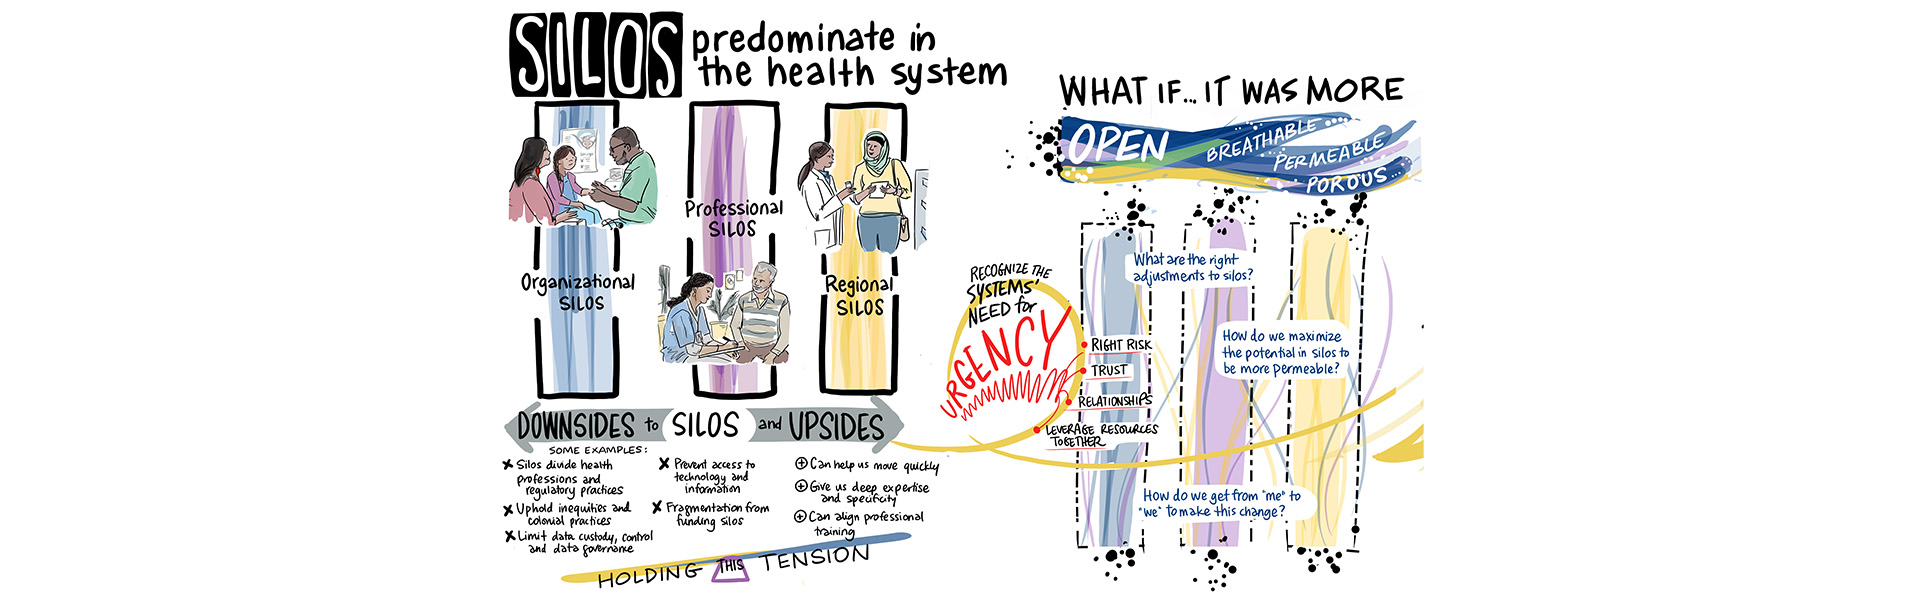 SILOS predominate in
the health system
Organizational
SILOS
Professional
SILOS
Regional
SILOS
DOWNSIDES to SILOS and UPSIDES
SOME EXAMPLES:
x Silos divide health
professions and
regulatory practices
x Uphold inequities and
colonial practices
x Limit data custody, control
and data governance
x Prevent access to
technology and
information
x Fragmentation from
funding silos
+ Can help us move quickly
+ Give us deep expertise
and specificity
+ Can align professional
training
HOLDING THIS TENSION
RECOGNIZE THE
SYSTEMS'
NEED for
URGENCY
RIGHT RISK
TRUST
RELATIONSHIPS
LEVERAGE RESOURCES
TOGETHER
WHAT IF... IT WAS MORE
OPEN
BREATHABLE
PERMEABLE
POROUS...
What are the right
adjustments to silos?
How do we maximize
the potential in silos to
be more permeable?
How do we get from "me" to
"we" to make this change?